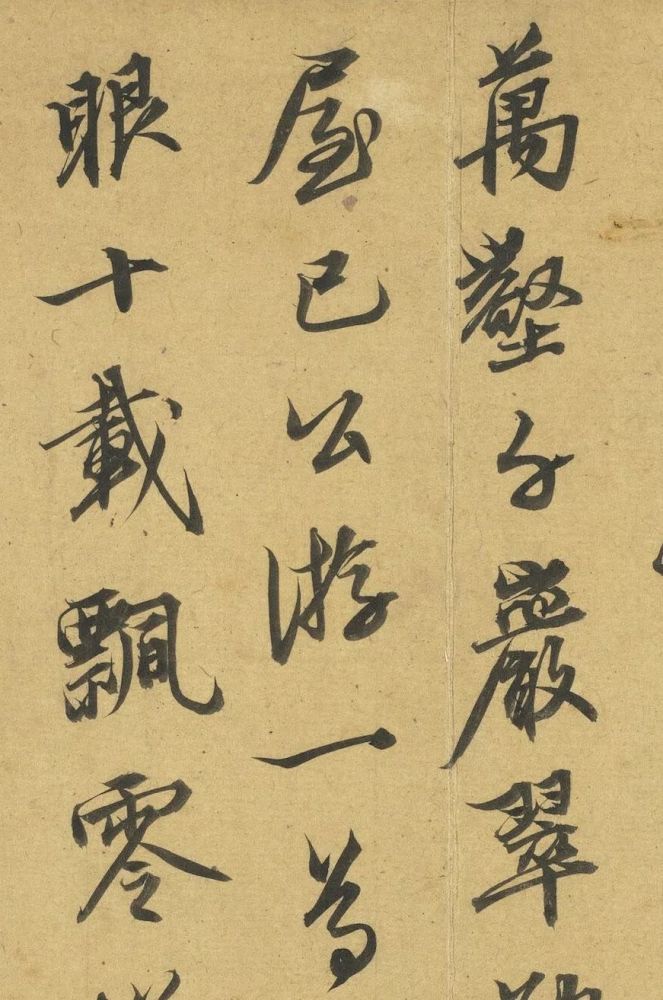 萬壑千巖翠
屋已公游一為
眼十載飄零